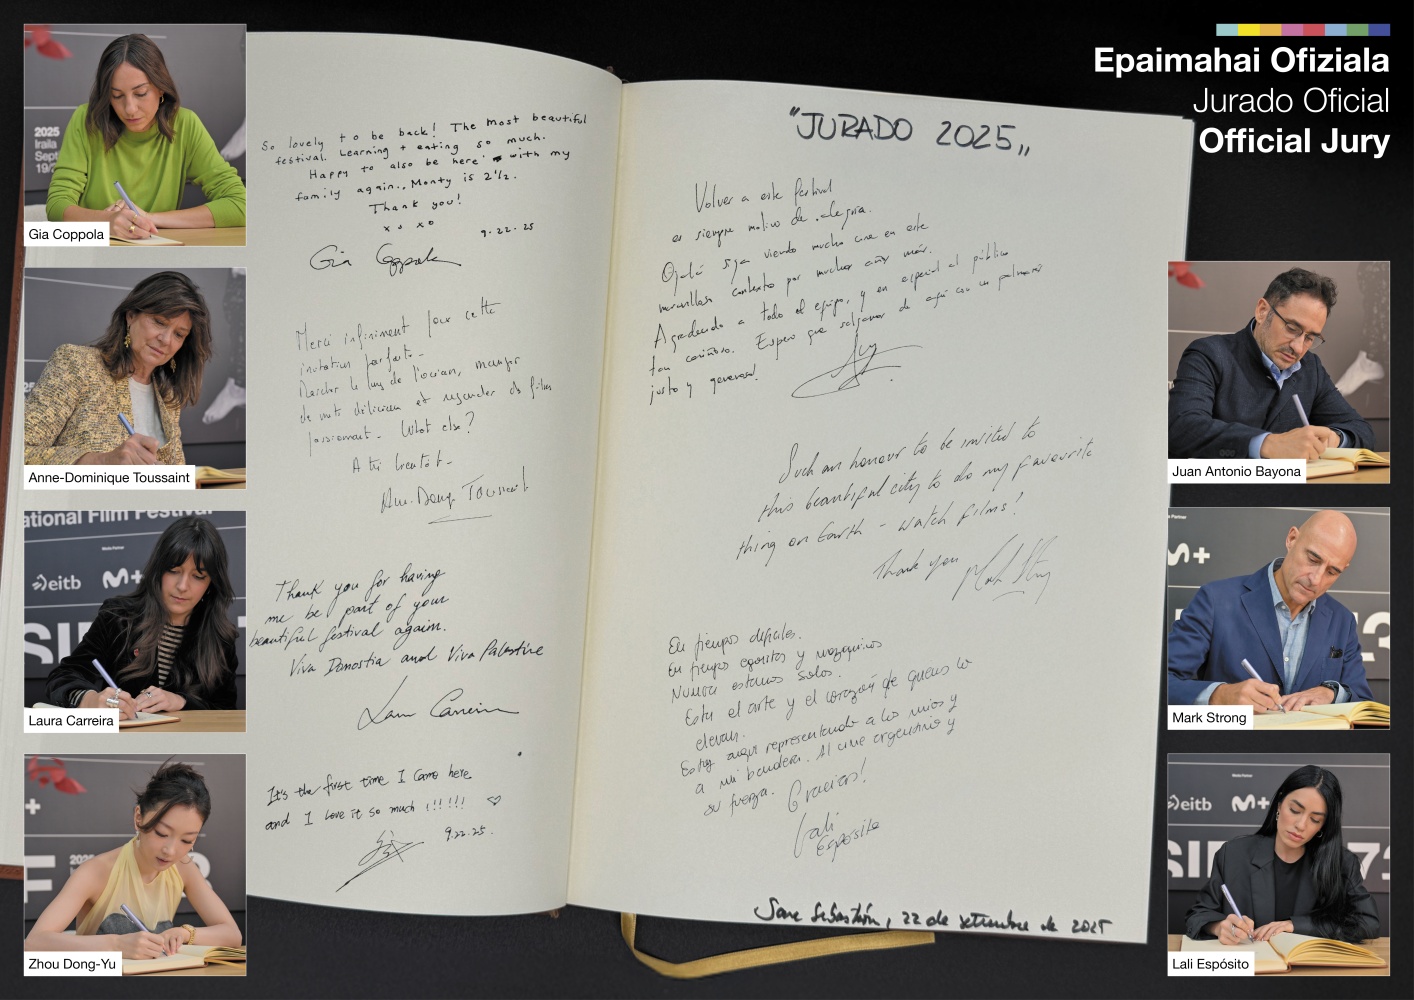 Epaimahai Ofiziala
Jurado Oficial
Official Jury
2025
Iraila
Sept
19/2
Gia Coppola
So lovely to be back! The most beautiful
festival. Learning + eating so much.
Happy to also be here with my
family again.. Monty is 2 1/2.
Thank you!
x o xo
9.22.25
Gia Coppola
Anne-Dominique Toussaint
Merci infiniment pour cette
invitation parfaite -
Regarder le bleu de l'océan, manger
de mets délicieux et regarder des films
passionnants - What else?
A très bientôt -
Anne-Domq Toussaint
national Film Festival
Media Partner
eitb
M+
SI
7
Laura Carreira
Thank you for having
me be part of your
beautiful festival again.
Viva Donostia and Viva Palestine
Laura Carreira
+
2025
F
Zhou Dong-Yu
It's the first time I came here
and I love it so much !!!!!! ♡
9.22.25.
"JURADO 2025"
Volver a este festival
es siempre motivo de alegría.
Ojalá siga viendo mucho cine en este
maravilloso contexto por muchos años más.
Agradecido a todo el equipo, y en especial al público
tan cariñoso. Espero que salgamos de aquí con un palmarés
justo y generoso!
Juan Antonio Bayona
Such an honour to be invited to
this beautiful city to do my favourite
thing on Earth - watch films!
Thank you Mark Strong
Media Partner
M+
73
Mark Strong
En tiempos difíciles.
En tiempos egoístas y mezquinos
Nunca estamos solos.
Está el arte y el corazón de quienes lo
elevan.
Estoy aquí representando a los míos y
a mi bandera. Al cine argentino y
su fuerza. Gracias!
Lali
Espósito
Media Partner
eitb
M+
SIF
73
Lali Espósito
San Sebastián, 22 de setiembre de 2025